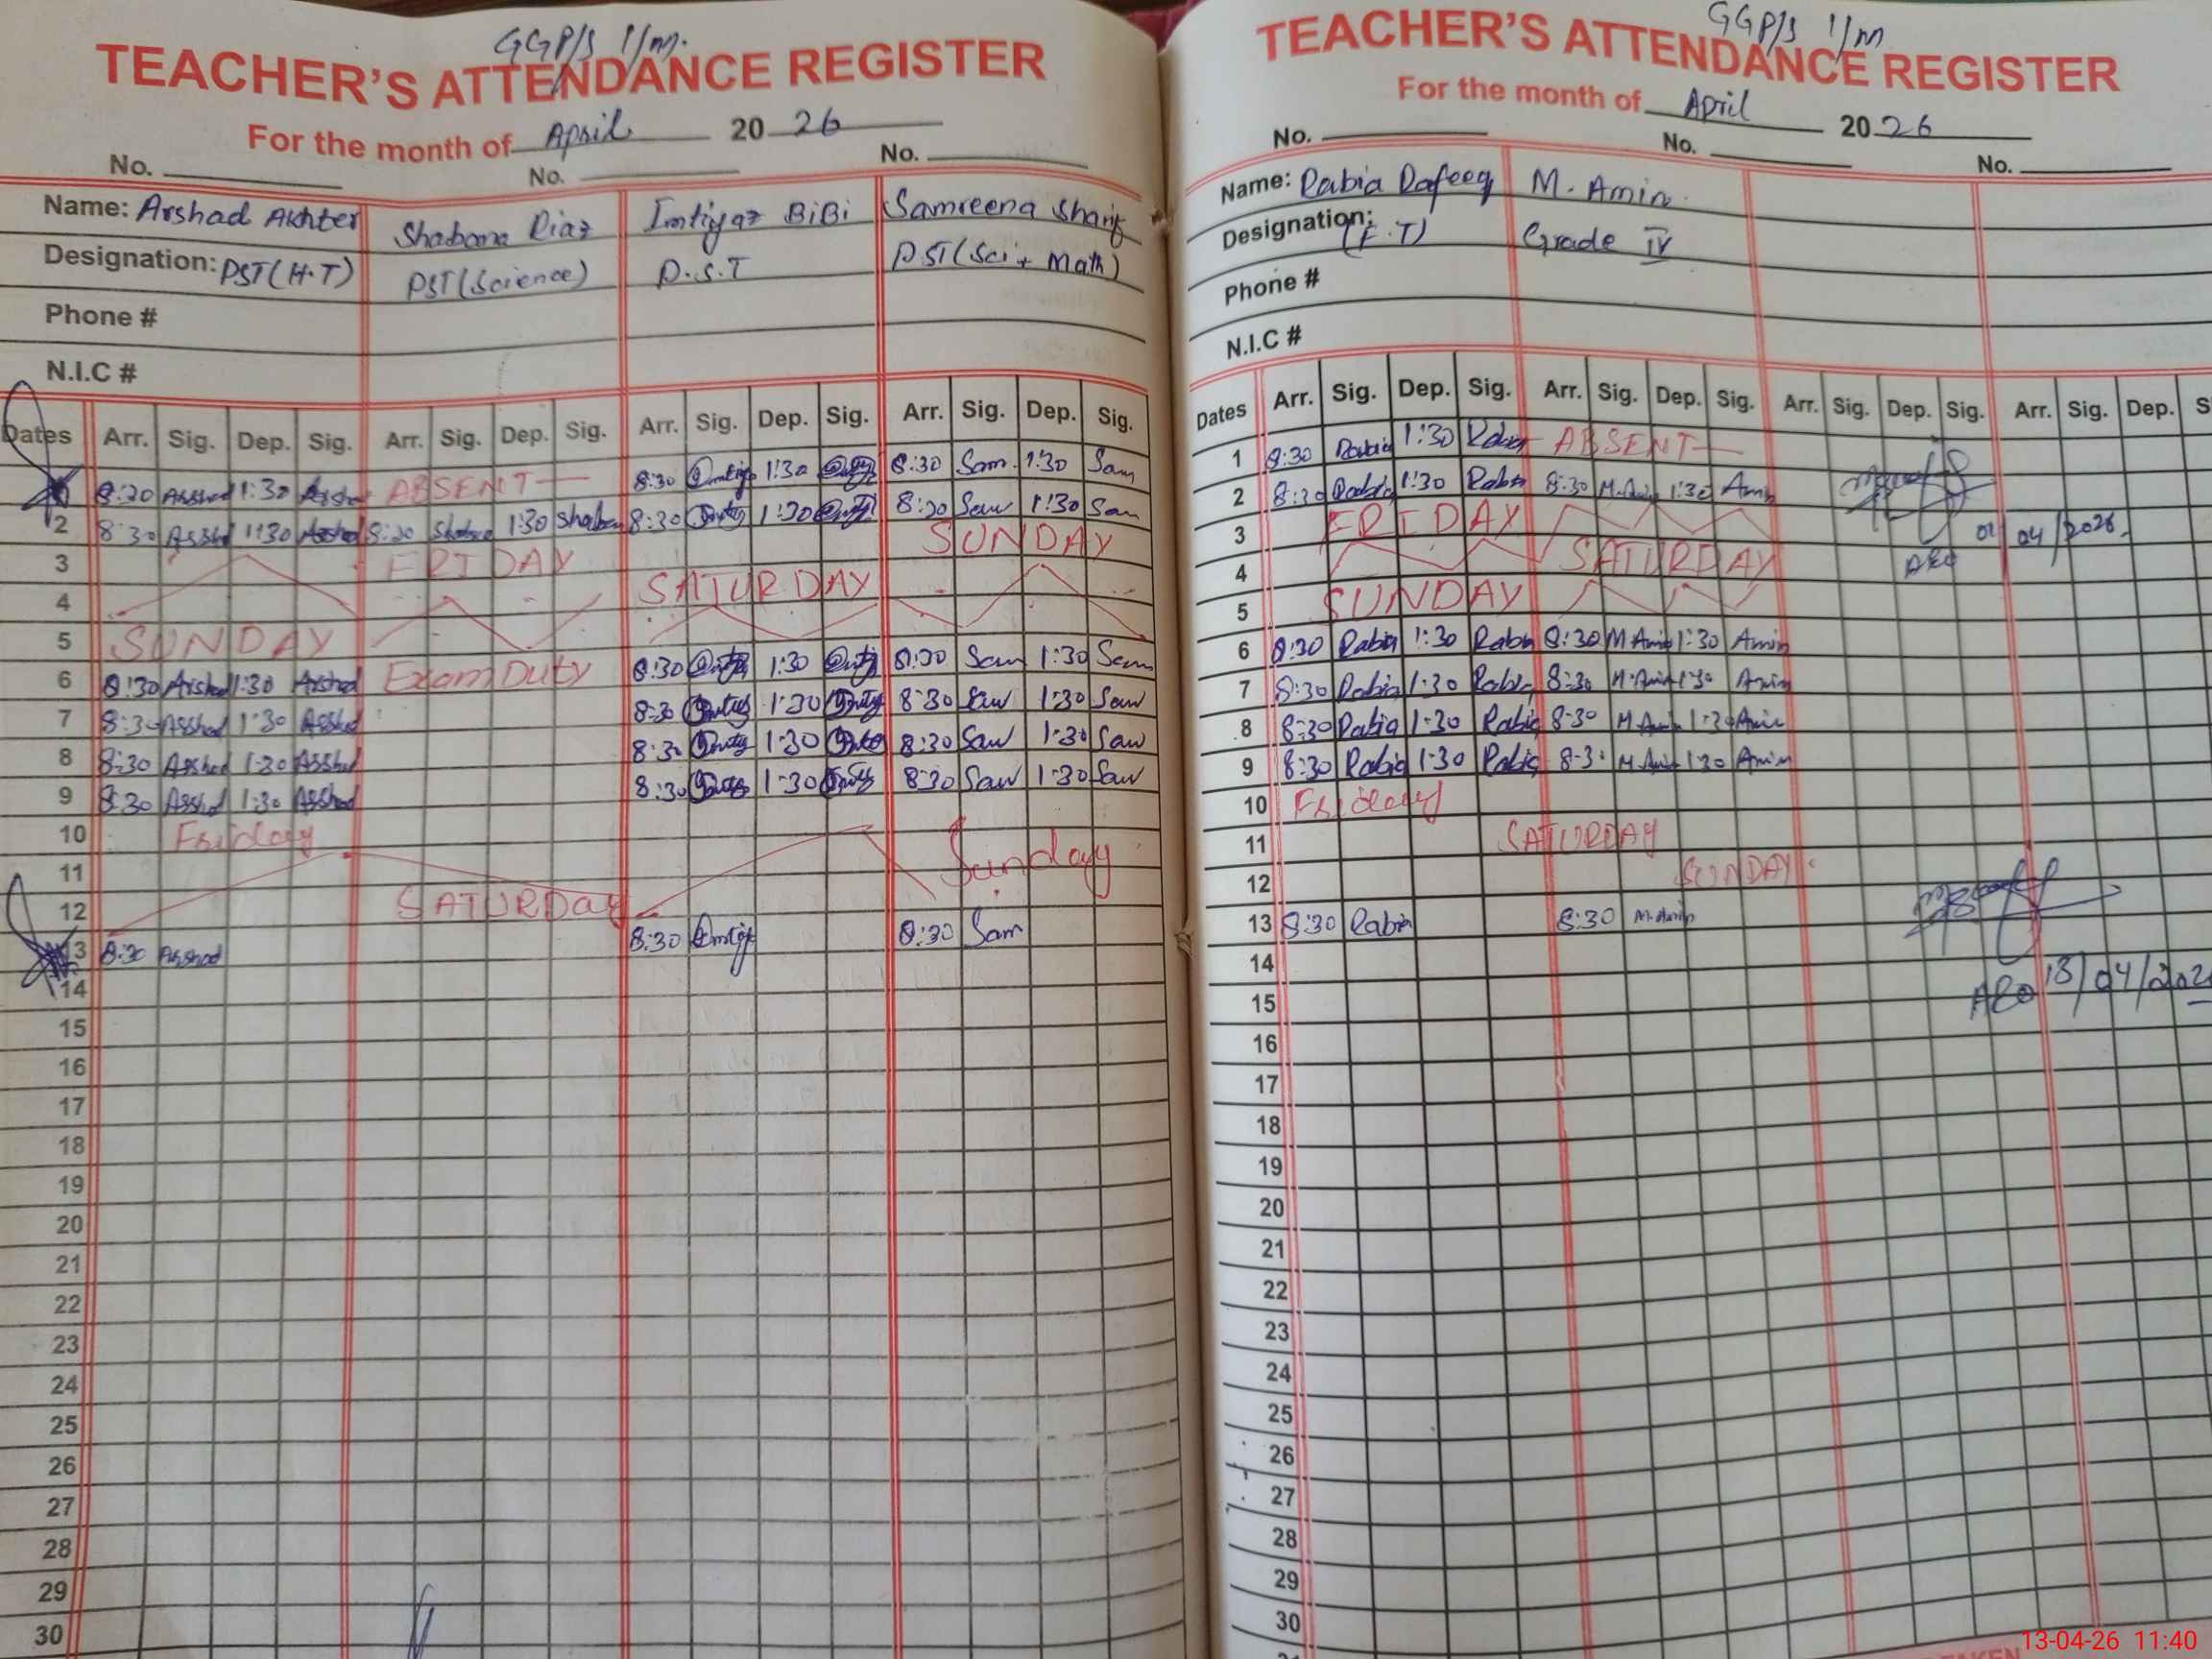 GGP/S 1/m.
TEACHER'S ATTENDANCE REGISTER
For the month of April 2026
No. No. No.
Name: Arshad Akhter Shabana Riaz Imtiyaz BiBi Samreena Sharif
Designation: PST (H.T) PST (Science) P.S.T PST (Sci + Math)
Phone #
N.I.C #
Dates Arr. Sig. Dep. Sig. Arr. Sig. Dep. Sig. Arr. Sig. Dep. Sig. Arr. Sig. Dep. Sig.
8:30 Arshad 1:30 Arshad ABSENT 8:30 Imtiyaz 1:30 8:30 Sam 1:30 Sam
2 8:30 Arshad 1:30 Arshad 8:30 Shabana 1:30 Shaban 8:30 1:30 8:30 Sam 1:30 Sam
3 FRIDAY SUNDAY
4 SATURDAY
5 SUNDAY
6 8:30 Arshad 1:30 Arshad Exam Duty 8:30 1:30 8:30 Sam 1:30 Sam
7 8:30 Arshad 1:30 Arshad 8:30 1:30 8:30 Sam 1:30 Sam
8 8:30 Arshad 1:30 Arshad 8:30 1:30 8:30 Sam 1:30 Sam
9 8:30 Arshad 1:30 Arshad 8:30 1:30 8:30 Sam 1:30 Sam
10 Friday
11 Sunday
12 SATURDAY
13 8:30 Arshad 8:30 Imtiyaz 8:30 Sam
14
15
16
17
18
19
20
21
22
23
24
25
26
27
28
29
30
GGP/S 1/m
TEACHER'S ATTENDANCE REGISTER
For the month of April 2026
No. No. No.
Name: Rabia Rafeeq M. Amin
Designation: (F.T) Grade IV
Phone #
N.I.C #
Dates Arr. Sig. Dep. Sig. Arr. Sig. Dep. Sig. Arr. Sig. Dep. Sig. Arr. Sig. Dep. S
1 8:30 Rabia 1:30 Rabia ABSENT
2 8:30 Rabia 1:30 Rabia 8:30 M.Amin 1:30 Amin
3 FRIDAY 01/04/2026
4 SATURDAY AEO
5 SUNDAY
6 8:30 Rabia 1:30 Rabia 8:30 M Amin 1:30 Amin
7 8:30 Rabia 1:30 Rabia 8:30 M.Amin 1:30 Amin
8 8:30 Rabia 1:30 Rabia 8:30 M Amin 1:30 Amin
9 8:30 Rabia 1:30 Rabia 8:30 M Amin 1:30 Amin
10 Friday
11 SATURDAY
12 SUNDAY
13 8:30 Rabia 8:30 M.Amin
14 AEO 13/04/202
15
16
17
18
19
20
21
22
23
24
25
26
27
28
29
30
13-04-26 11:40